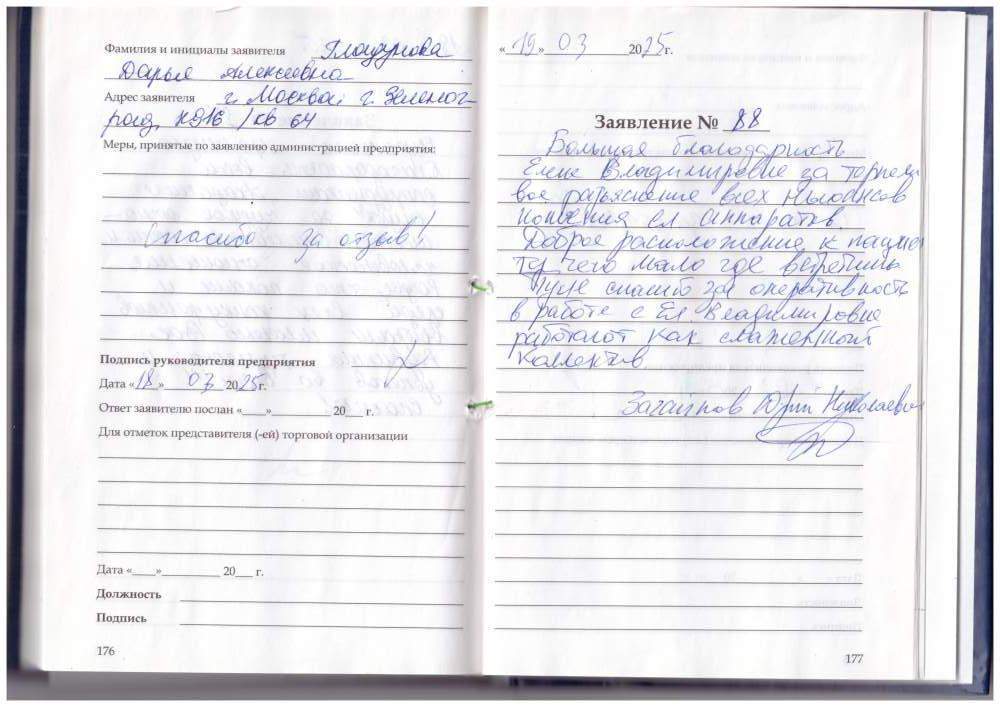 Фамилия и инициалы заявителя Глазунова
Дарья Алексеевна
Адрес заявителя г. Москва, г. Зеленог-
рад, к 916 / кв 64
Меры, принятые по заявлению администрацией предприятия:
Спасибо за отзыв!
Подпись руководителя предприятия
Дата «18» 03 2025г.
Ответ заявителю послан «___»_________ 20__ г.
Для отметок представителя (-ей) торговой организации
Дата «___»_________ 20__ г.
Должность
Подпись
176
«19» 03 2025г.
Заявление № 88
Большая благодарность
Елене Владимировне за терпели
вое разъяснение всех ньюансов
ношения сл аппаратов.
Доброе расположение к пацие
чего мало где встретишь
спасибо за оперативность
в работе с Ел Владимировне
работают как слаженный
коллектив.
Юрий Николаевич
177